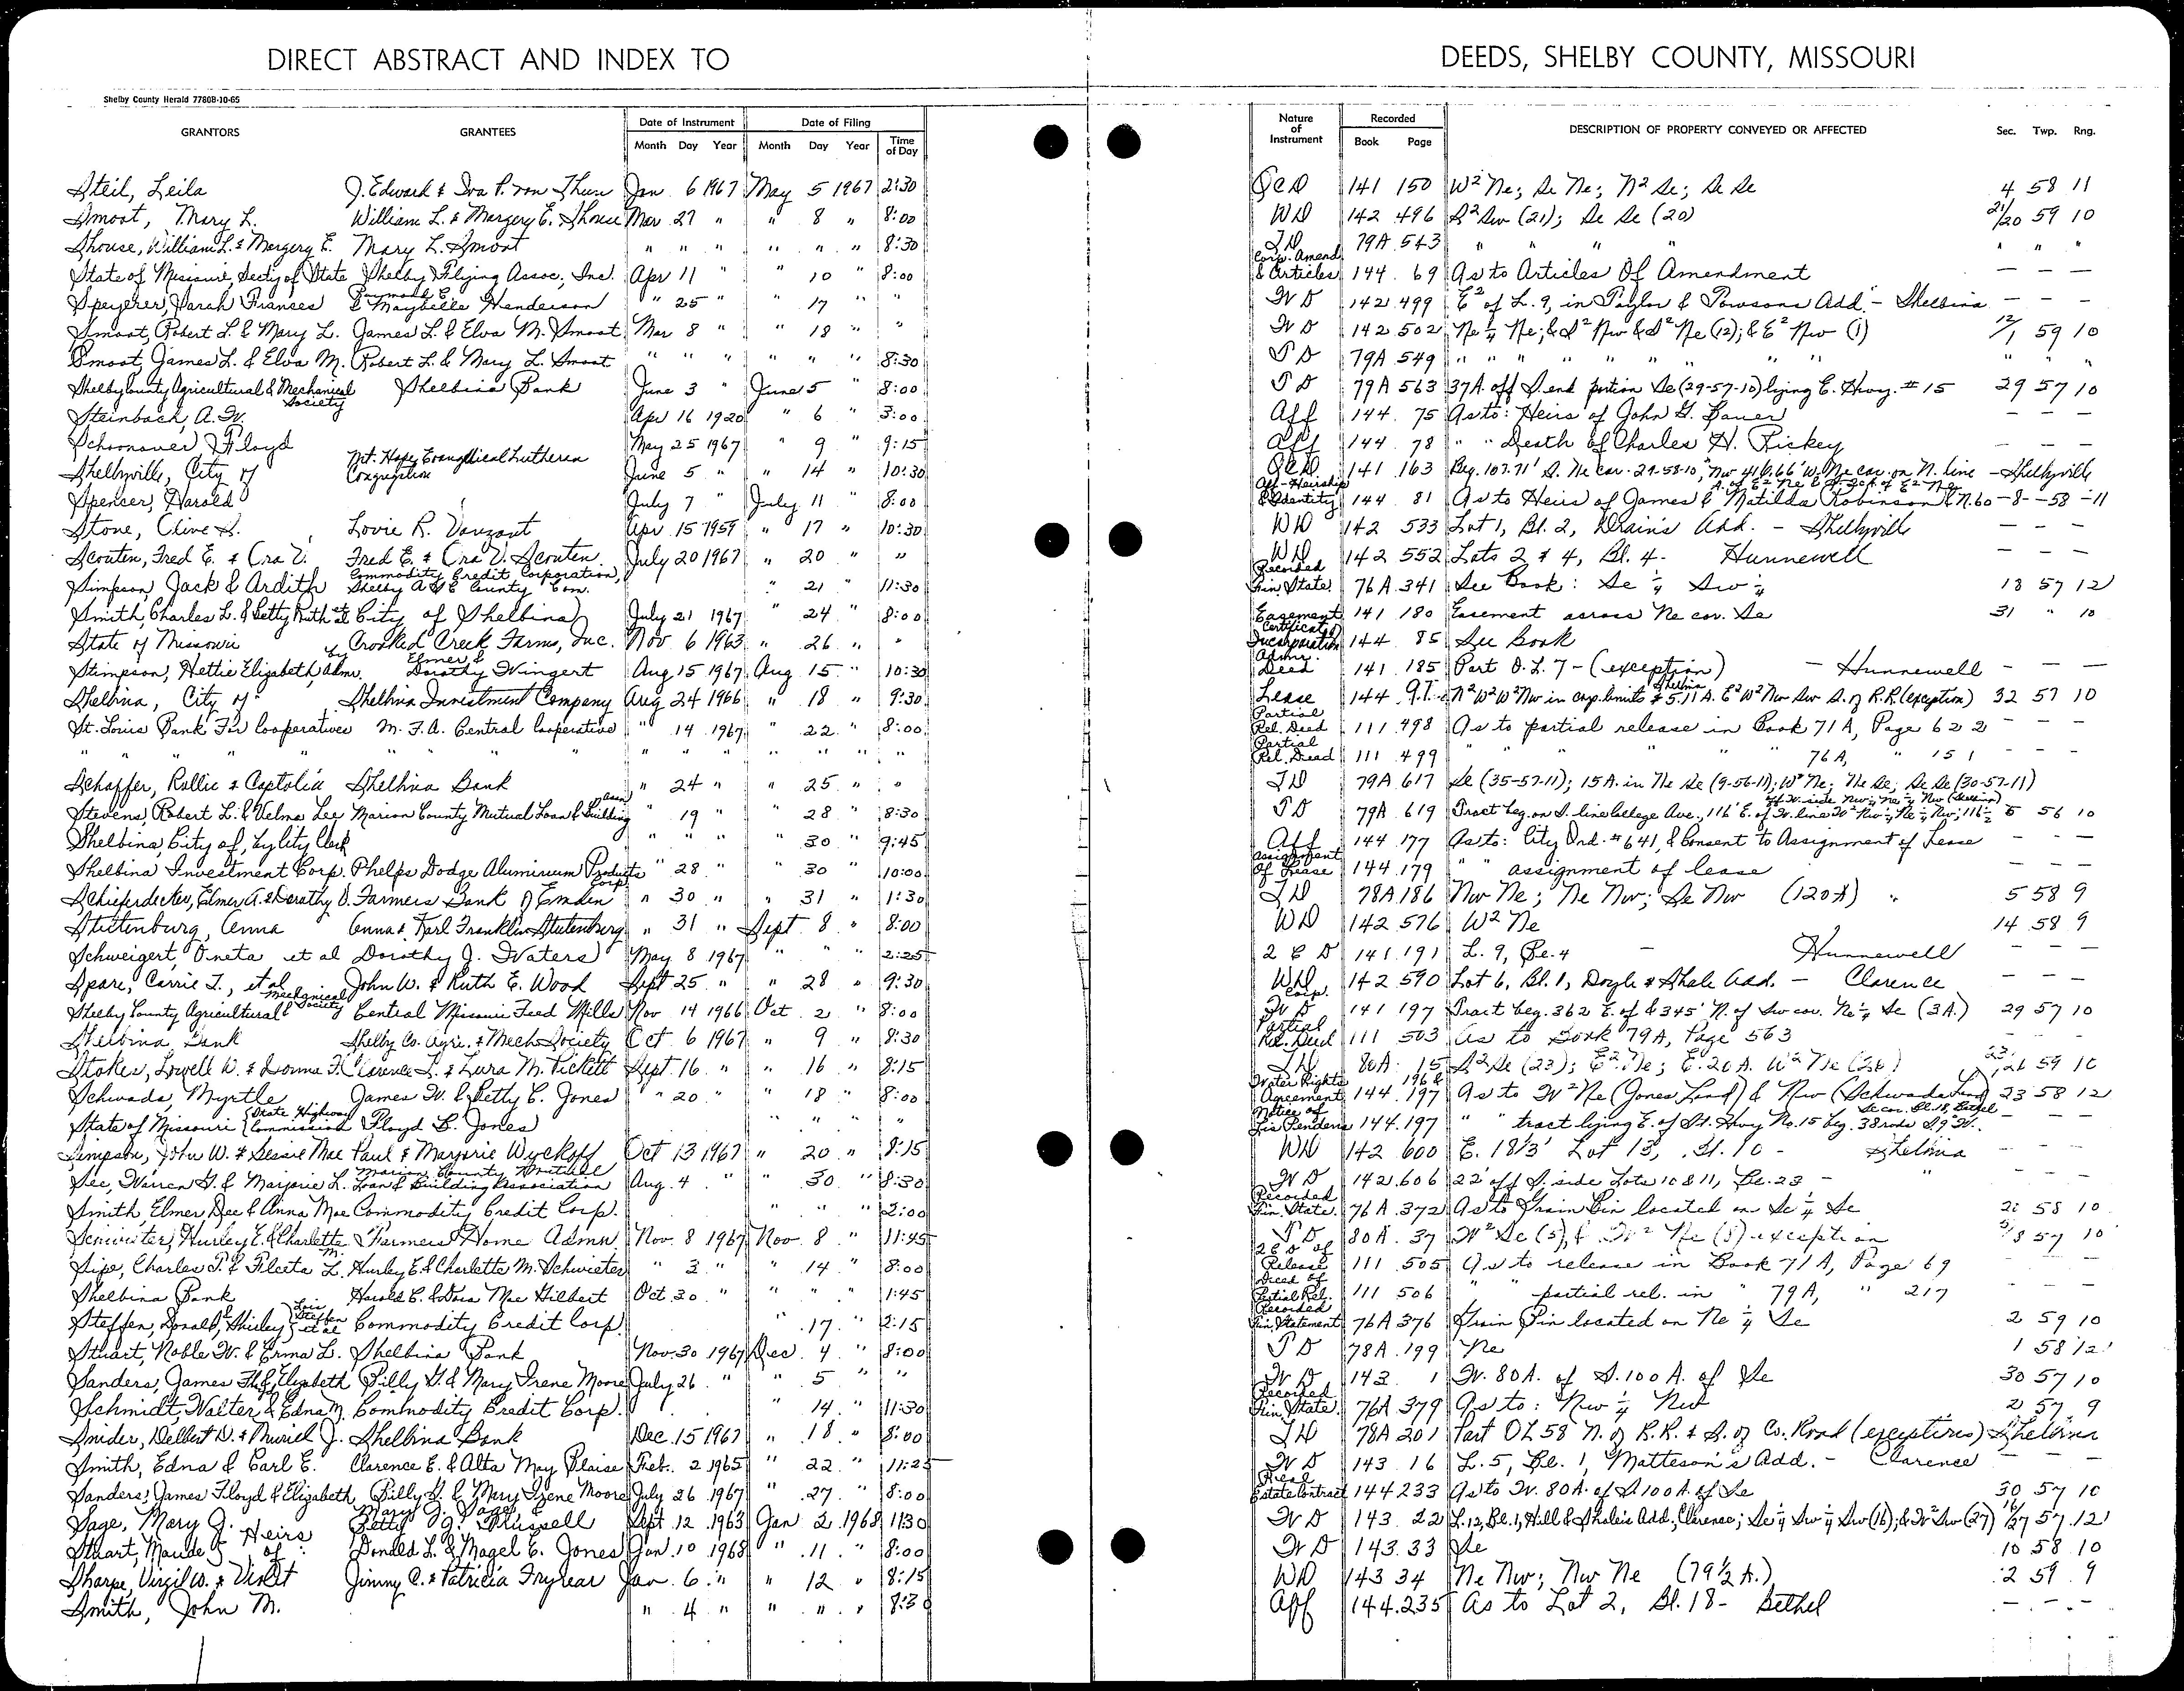 DIRECT ABSTRACT AND INDEX TO DEEDS, SHELBY COUNTY, MISSOURI
Shelby County Herald 7780B-10-65
GRANTORS GRANTEES Date of Instrument Month Day Year Date of Filing Month Day Year Time of Day Nature of Instrument Recorded Book Page DESCRIPTION OF PROPERTY CONVEYED OR AFFECTED Sec. Twp. Rng.
Steil, Leila J. Edward & Iva P. von Thun Jan 6 1967 May 5 1967 2:30 QCD 141 150 W² Ne; Se Ne; N² Se; Se Se 4 58 11
Smoot, Mary L. William L. & Margery E. Shouse Mar 27 " " 8 " 8:00 WD 142 496 S² Sw (21); Se Se (20) 21/20 59 10
Shouse, William L. & Margery E. Mary L. Smoot " " " " " " 8:30 TD 79A 543 " " " " " " "
State of Missouri, Secty of State Shelby Flying Assoc., Inc. Apr 11 " " 10 " 8:00 Corp. Amend. & Articles 144 69 As to Articles Of Amendment — — —
Speyerer, Sarah Frances Raymond E. & Maybelle Henderson " 25 " " 17 " " WD 142 499 E² of L. 9, in Taylor & Towsons Add. - Shelbina — — —
Smoot, Robert L. & Mary L. James L. & Elva M. Smoot Mar 8 " " 18 " " WD 142 502 Ne ¼ Ne; & S² Nw & S² Ne (12); & E² Nw (1) 12/1 59 10
Smoot, James L. & Elva M. Robert L. & Mary L. Smoot " " " " " " 8:30 TD 79A 549 " " " " " " " " " " "
Shelby County Agricultural & Mechanical Society Shelbina Bank June 3 " June 5 " 8:00 TD 79A 563 37A. off S. end portion Se (29-57-10) lying E. Hwy. #15 29 57 10
Steinbach, A. W. Apr 16 1920 " 6 " 3:00 Aff 144 75 As to: Heirs of John G. Bauer — — —
Schoonover Floyd May 25 1967 " 9 " 9:15 Aff 144 78 " " Death of Charles H. Rickey — — —
Shelbyville, City of Mt. Hope Evangelical Lutheran Congregation June 5 " " 14 " 10:30 QCD 141 163 Beg. 107.71' S. Ne cor. 29-58-10, Nw 416.66' W. Ne cor. on N. line - Shelbyville
Spencer, Harold July 7 " July 11 " 8:00 Aff-Heirship & Identity 144 81 As to Heirs of James & Matilda Robinson 8 - 58 - 11
Stone, Clive S. Lovie R. Vanzant Apr 15 1959 " 17 " 10:30 WD 142 533 Lot 1, Bl. 2, Drain's Add. - Shelbyville — — —
Scouten, Fred E. & Ora V. Fred E. & Ora V. Scouten July 20 1967 " 20 " " WD 142 552 Lots 2 & 4, Bl. 4 - Hunnewell — — —
Simpson, Jack & Ardith Commodity Credit Corporation, Shelby A S C County Com. " 21 " 11:30 Recorded Fin. State. 76A 341 See Book: Se ¼ Sw ¼ 18 57 12
Smith, Charles L. & Betty Ruth et al City of Shelbina July 21 1967 " 24 " 8:00 Easement 141 180 Easement across Ne cor. Se 31 " 10
State of Missouri Crooked Creek Farms, Inc. Nov 6 1963 " 26 " " Certificate Incorporation 144 85 See Book
Stimpson, Hettie Elizabeth, by Adm. Elmer & Dorothy Wingert Aug 15 1967 Aug 15 " 10:30 Adm. Deed 141 185 Part O.L. 7 - (exception) - Hunnewell — — —
Shelbina, City of Shelbina Investment Company Aug 24 1966 " 18 " 9:30 Lease 144 97 N² W² W² Nw in corp. limits Shelbina & 5.11 A. E² W² Nw Sw S. of R.R. (exception) 32 57 10
St. Louis Bank For Cooperatives M. F. A. Central Cooperative " 14 1967 " 22 " 8:00 Partial Rel. Deed 111 498 As to partial release in Book 71A, Page 622 — — —
" " " " " " " " " " " " Partial Rel. Deed 111 499 " " " " " 76A, " 151 — — —
Schaffer, Rollie & Captolia Shelbina Bank " 24 " " 25 " " TD 79A 617 Se (35-57-11); 15A. in Ne Se (9-56-11); W² Ne; Ne Se; Se Se (30-57-11)
Stevens, Robert L. & Velma Lee Marion County Mutual Loan & Building Assn " 19 " " 28 " 8:30 TD 79A 619 Tract beg. on S. line College Ave., 116' E. of W. line 5 56 10
Shelbina, City of, by City Clerk " " " 30 " 9:45 Aff 144 177 As to: City Ord. #641, & Consent to Assignment of Lease — — —
Shelbina Investment Corp. Phelps Dodge Aluminum Products Corp. " 28 " 30 10:00 Assignment Of Lease 144 179 " " assignment of lease — — —
Schieferdecker, Elmer A. & Dorothy D. Farmers Bank of Emden " 30 " " 31 " 1:30 TD 78A 186 Nw Ne; Ne Nw; Se Nw (120A) 5 58 9
Stutenburg, Anna Anna & Karl Franklin Stutenberg " 31 " Sept 8 " 8:00 WD 142 576 W² Ne 14 58 9
Schweigert, Oneta et al Dorothy J. Waters May 8 1967 " " " 2:25 QCD 141 191 L. 9, Bl. 4 - Hunnewell — — —
Spare, Carrie L., et al John W. & Ruth E. Wood Sept 25 " " 28 " 9:30 WD Corp. 142 590 Lot 6, Bl. 1, Doyle & Shale Add. - Clarence — — —
Shelby County Agricultural & Mechanical Society Central Missouri Feed Mills Nov 14 1966 Oct 2 " 8:00 WD 141 197 Tract beg. 362 E. of & 345' N. of Sw cor. Ne ¼ Se (3A.) 29 57 10
Shelbina Bank Shelby Co. Agri. & Mech Society Oct 6 1967 " 9 " 8:30 Partial Rel. Deed 111 503 As to Book 79A, Page 563 — — —
Stokes, Lowell W. & Donna F. Clarence L. & Lura M. Pickett Sept 16 " " 16 " 8:15 TD 80A 15 S² Se (23); E² Ne; E. 20A. W² Ne (26) 23/26 59 10
Schwada, Myrtle James W. & Betty C. Jones " 20 " " 18 " 8:00 Water Rights Agreement 144 196 & 197 As to W² Ne (Jones Land) & Nw (Schwada Land) 23 58 12
State of Missouri {State Highway Commission Floyd B. Jones " " " Notice of Lis Pendens 144 197 " " tract lying E. of St. Hwy No. 15 beg. 38 rods — — —
Simpson, John W. & Sessie Mae Paul & Marjorie Wyckoff Oct 13 1967 " 20 " 8:15 WD 142 600 E. 18⅓' Lot 13, Bl. 10 - Shelbina — — —
See, Warren G. & Marjorie L. Marion County Mutual Loan & Building Association Aug. 4 " " 30 " 8:30 WD 142 606 22' off S. side Lots 10 & 11, Bl. 23 - " — — —
Smith, Elmer Dee & Anna Mae Commodity Credit Corp. " " " 2:00 Recorded Fin. State. 76A 372 As to Grain Bin located on Se ¼ Se 58 10
Schwieter, Hurley E. & Charlette M. Farmers Home Admn Nov. 8 1967 Nov. 8 " 11:45 TD 80A 37 W² Se (5), & W² Ne (8) exception 5/8 57 10
Sipe, Charles T. & Fleeta L. Hurley E. & Charlette M. Schwieter " 3 " " 14 " 8:00 Release 111 505 As to release in Book 71A, Page 69
Shelbina Bank Harold C. & Dora Mae Hilbert Oct. 30 " " " " 1:45 Deed of Partial Rel. 111 506 " " partial rel. in " 79A, " 217 — — —
Steffen, Donald, & Shirley {Lois Steffen et al Commodity Credit Corp. 17 " 2:15 Recorded Fin. Statement 76A 376 Grain Bin located on Ne ¼ Se 2 59 10
Stuart, Noble W. & Erma L. Shelbina Bank Nov. 30 1967 Dec. 4 " 8:00 TD 78A 199 Ne 1 58 12
Sanders, James F. & Elizabeth Billy G. & Mary Irene Moore July 26 " " 5 " " WD 143 1 W. 80A. of S. 100A. of Se 30 57 10
Schmidt, Walter & Edna M. Commodity Credit Corp. " 14 " 11:30 Recorded Fin. State. 76A 379 As to: Nw ¼ Nw 2 57 9
Snider, Delbert D. & Muriel J. Shelbina Bank Dec. 15 1967 " 18 " 8:00 TD 78A 201 Part OL 58 N. of R.R. & S. of Co. Road (exceptions) Shelbina
Smith, Edna & Carl E. Clarence E. & Alta May Blaise Feb. 2 1965 " 22 " 11:25 WD 143 16 L. 5, Bl. 1, Matteson's Add. - Clarence — —
Sanders, James Floyd & Elizabeth Billy G. & Mary Irene Moore July 26 1967 " 27 " 8:00 Real Estate Contract 144 233 As to W. 80A. of S. 100A. of Se 30 57 10
Sage, Mary J. Mary J. Sage & Betty J. Russell Sept 12 1963 Jan 2 1968 11:30 WD 143 22 L. 12, Bl. 1, Hill & Shale's Add., Clarence; Se ¼ Sw ¼ Sw (16); & W² Sw (27) 16/27 57 12
Stuart, Maude Heirs of Donald L. & Magel E. Jones Jan. 10 1968 " 11 " 8:00 WD 143 33 Se 10 58 10
Sharpe, Virgil W. & Violet Jimmy C. & Patricia Fryrear Jan. 6 " " 12 " 8:15 WD 143 34 Ne Nw; Nw Ne (79½ A.) 2 59 9
Smith, John M. " 4 " " " " 8:30 Aff 144 235 As to Lot 2, Bl. 18 - Bethel — — —